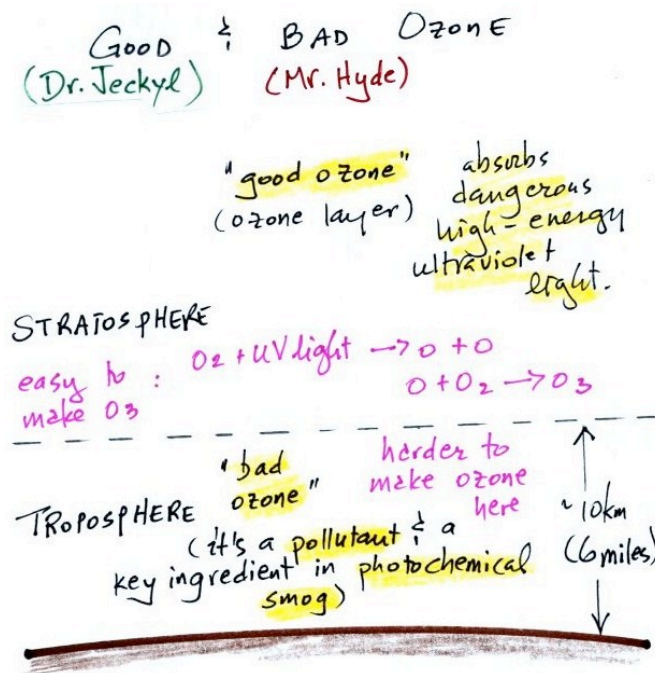 GOOD & BAD OZONE
(Dr. Jeckyl) (Mr. Hyde)
"good ozone"
(ozone layer)
absorbs
dangerous
high-energy
ultraviolet
light.
STRATOSPHERE
easy to :
make O3
O2 + UV light → O + O
O + O2 → O3
"bad
ozone"
harder to
make ozone
here
TROPOSPHERE
(it's a pollutant & a
key ingredient in photochemical
smog)
~10km
(6 miles)